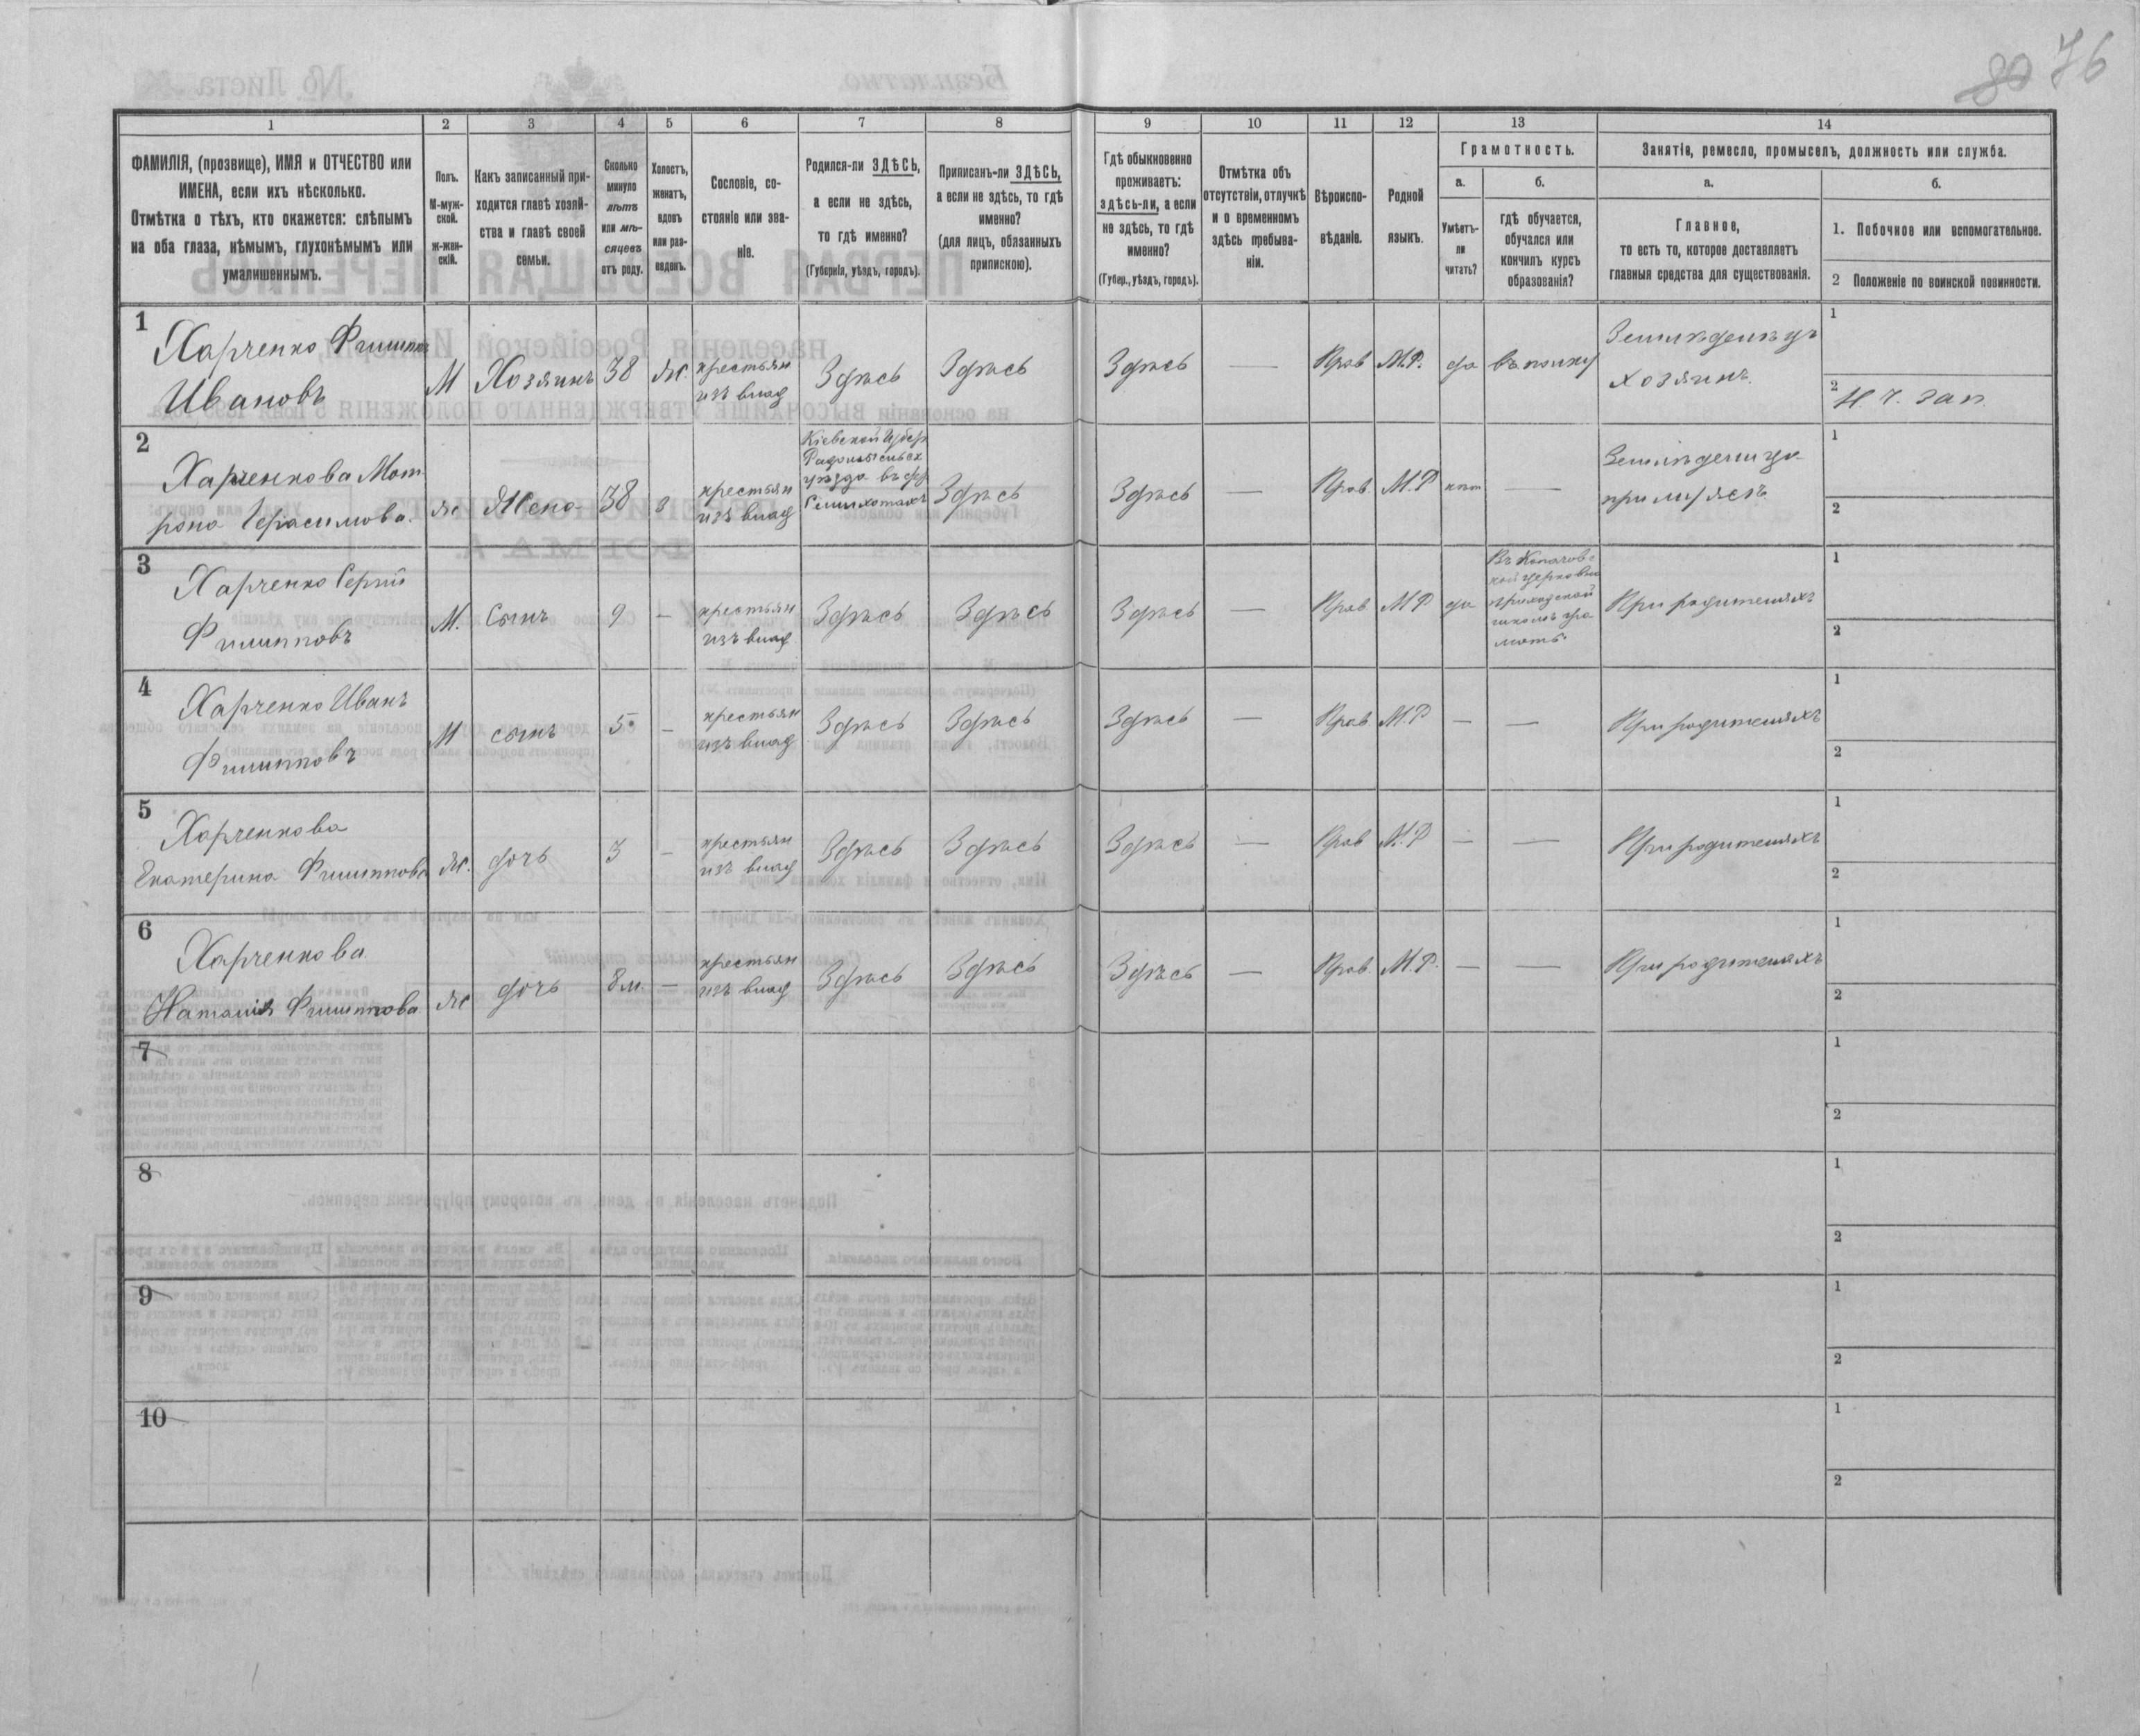 80 76
1
2
3
4
5
6
7
8
9
10
11
12
13
14
ФАМИЛІЯ, (прозвище), ИМЯ и ОТЧЕСТВО или
ИМЕНА, если ихъ нѣсколько.
Отмѣтка о тѣхъ, кто окажется: слѣпымъ
на оба глаза, нѣмымъ, глухонѣмымъ или
умалишеннымъ.
Полъ.
М-муж-
ской.
Ж-жен-
скій.
Какъ записанный при-
ходится главѣ хозяй-
ства и главѣ своей
семьи.
Сколько
минуло
лѣтъ
или мѣ-
сяцевъ
отъ роду.
Холостъ,
женатъ,
вдовъ
или раз-
веденъ.
Сословіе, со-
стояніе или зва-
ніе.
Родился-ли ЗДѢСЬ,
а если не здѣсь,
то гдѣ именно?
(Губернія, уѣздъ, городъ).
Приписанъ-ли ЗДѢСЬ,
а если не здѣсь, то гдѣ
именно?
(для лицъ, обязанныхъ
припискою).
Гдѣ обыкновенно
проживаетъ:
здѣсь-ли, а если
не здѣсь, то гдѣ
именно?
(Губер., уѣздъ, городъ).
Отмѣтка объ
отсутствіи, отлучкѣ
и о временномъ
здѣсь пребыва-
ніи.
Вѣроиспо-
вѣданіе.
Родной
языкъ.
Грамотность.
а.
Умѣетъ-
ли
читать?
б.
гдѣ обучается,
обучался или
кончилъ курсъ
образованія?
Занятіе, ремесло, промыселъ, должность или служба.
а.
Главное,
то есть то, которое доставляетъ
главныя средства для существованія.
б.
1. Побочное или вспомогательное.
2 Положеніе по воинской повинности.
1
Харченко Филиппъ
Ивановъ
М Хозяинъ 38 Ж.
крестьян
изъ влад
Здѣсь Здѣсь Здѣсь — Прав М.Р. да въ полку
Земледѣлецъ
хозяинъ.
1
2 Н. Ч. зап.
2
Харченкова Мат
рона Герасимова.
ж Жена 38 з
крестьян
изъ влад
Кіевской Губер
Радомысльск
уѣзда въ дер
Здѣсь Здѣсь — Прав. М.Р нѣт —
при мужѣ
1
2
3
Харченко Сергій
Филипповъ
М. Сынъ 9 —
крестьян
изъ влад
Здѣсь Здѣсь Здѣсь — Прав М Р да
церковно
приходской
школѣ гра
мотѣ
При родителяхъ
1
2
4
Харченко Иванъ
Филипповъ
М сынъ 5 —
крестьян
изъ влад
Здѣсь Здѣсь Здѣсь — Прав М.Р — — При родителяхъ
1
2
5
Харченкова
Екатерина Филиппова
Ж. дочь 3 —
крестьян
изъ влад
Здѣсь Здѣсь Здѣсь — Прав М.Р — — При родителяхъ
1
2
6
Харченкова
Наталія Филиппова
Ж дочь 8 м —
крестьян
изъ влад
Здѣсь Здѣсь Здѣсь — Прав. М.Р. — — При родителяхъ
1
2
7
1
2
8
1
2
9
1
2
10
1
2